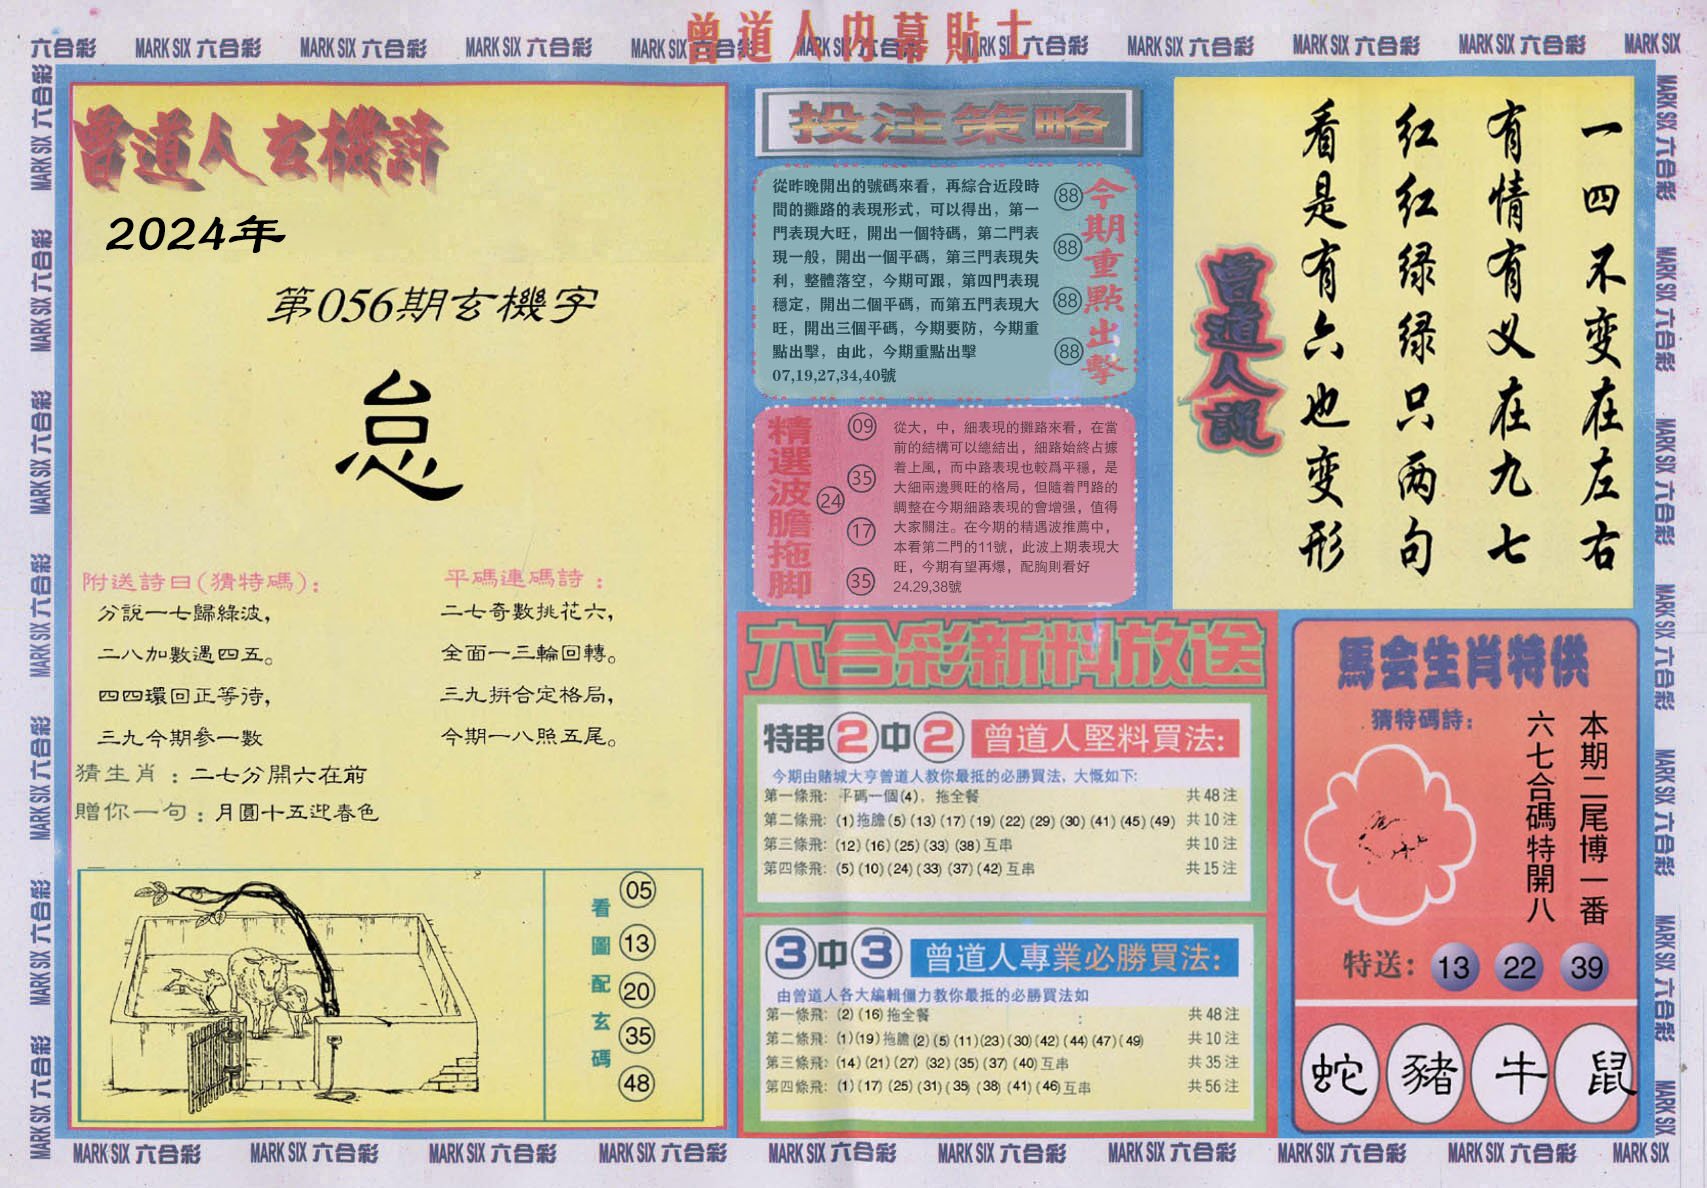 曾道人内幕貼士
六合彩 MARK SIX 六合彩 MARK SIX 六合彩 MARK SIX 六合彩 MARK SIX 六合彩 MARK SIX 六合彩 MARK SIX 六合彩 MARK SIX 六合彩 MARK SIX 六合彩 MARK SIX 六合彩 MARK SIX
曾道人玄機詩
2024年
第056期玄機字
怠
附送詩曰(猜特碼):
分說一七歸綠波,
二八加數遇四五。
四四環回正等待,
三九今期參一數
平碼連碼詩:
二七奇數挑花六,
全面一三輪回轉。
三九拼合定格局,
今期一八照五尾。
猜生肖:二七分開六在前
贈你一句:月圓十五迎春色
看圖配玄碼
05
13
20
35
48
投注策略
從昨晚開出的號碼來看，再綜合近段時
間的攤路的表現形式，可以得出，第一
門表現大旺，開出一個特碼，第二門表
現一般，開出一個平碼，第三門表現失
利，整體落空，今期可跟，第四門表現
穩定，開出二個平碼，而第五門表現大
旺，開出三個平碼，今期要防，今期重
點出擊，由此，今期重點出擊
07,19,27,34,40號
88
88
88
88
今期重點出擊
精選波膽拖脚
09
35
24
17
35
從大，中，細表現的攤路來看，在當
前的結構可以總結出，細路始終占據
着上風，而中路表現也較爲平穩，是
大細兩邊興旺的格局，但隨着門路的
調整在今期細路表現的會增强，值得
大家關注。在今期的精遇波推薦中，
本看第二門的11號，此波上期表現大
旺，今期有望再爆，配胸則看好
24.29,38號
一四不变在左右
有情有义在九七
红红绿绿只两句
看是有六也变形
曾道人説
六合彩新料放送
特串2中2 曾道人堅料買法:
今期由賭城大亨曾道人教你最抵的必勝買法, 大慨如下:
第一條飛: 平碼一個(4), 拖全餐 共48注
第二條飛: (1)拖膽(5)(13)(17)(19)(22)(29)(30)(41)(45)(49) 共10注
第三條飛: (12)(16)(25)(33)(38)互串 共10注
第四條飛: (5)(10)(24)(33)(37)(42)互串 共15注
3中3 曾道人專業必勝買法:
由曾道人各大編輯僵力教你最抵的必勝買法如
第一條飛: (2)(16)拖全餐 : 共48注
第二條飛: (1)(19)拖膽(2)(5)(11)(23)(30)(42)(44)(47)(49) 共10注
第三條飛: (14)(21)(27)(32)(35)(37)(40)互串 共35注
第四條飛: (1)(17)(25)(31)(35)(38)(41)(46)互串 共56注
馬会生肖特供
猜特碼詩:
本期二尾博一番
六七合碼特開八
特送: 13 22 39
蛇 豬 牛 鼠
MARK SIX 六合彩 MARK SIX 六合彩 MARK SIX 六合彩 MARK SIX 六合彩 MARK SIX 六合彩 MARK SIX 六合彩 MARK SIX 六合彩 MARK SIX 六合彩 MARK SIX 六合彩 MARK SIX